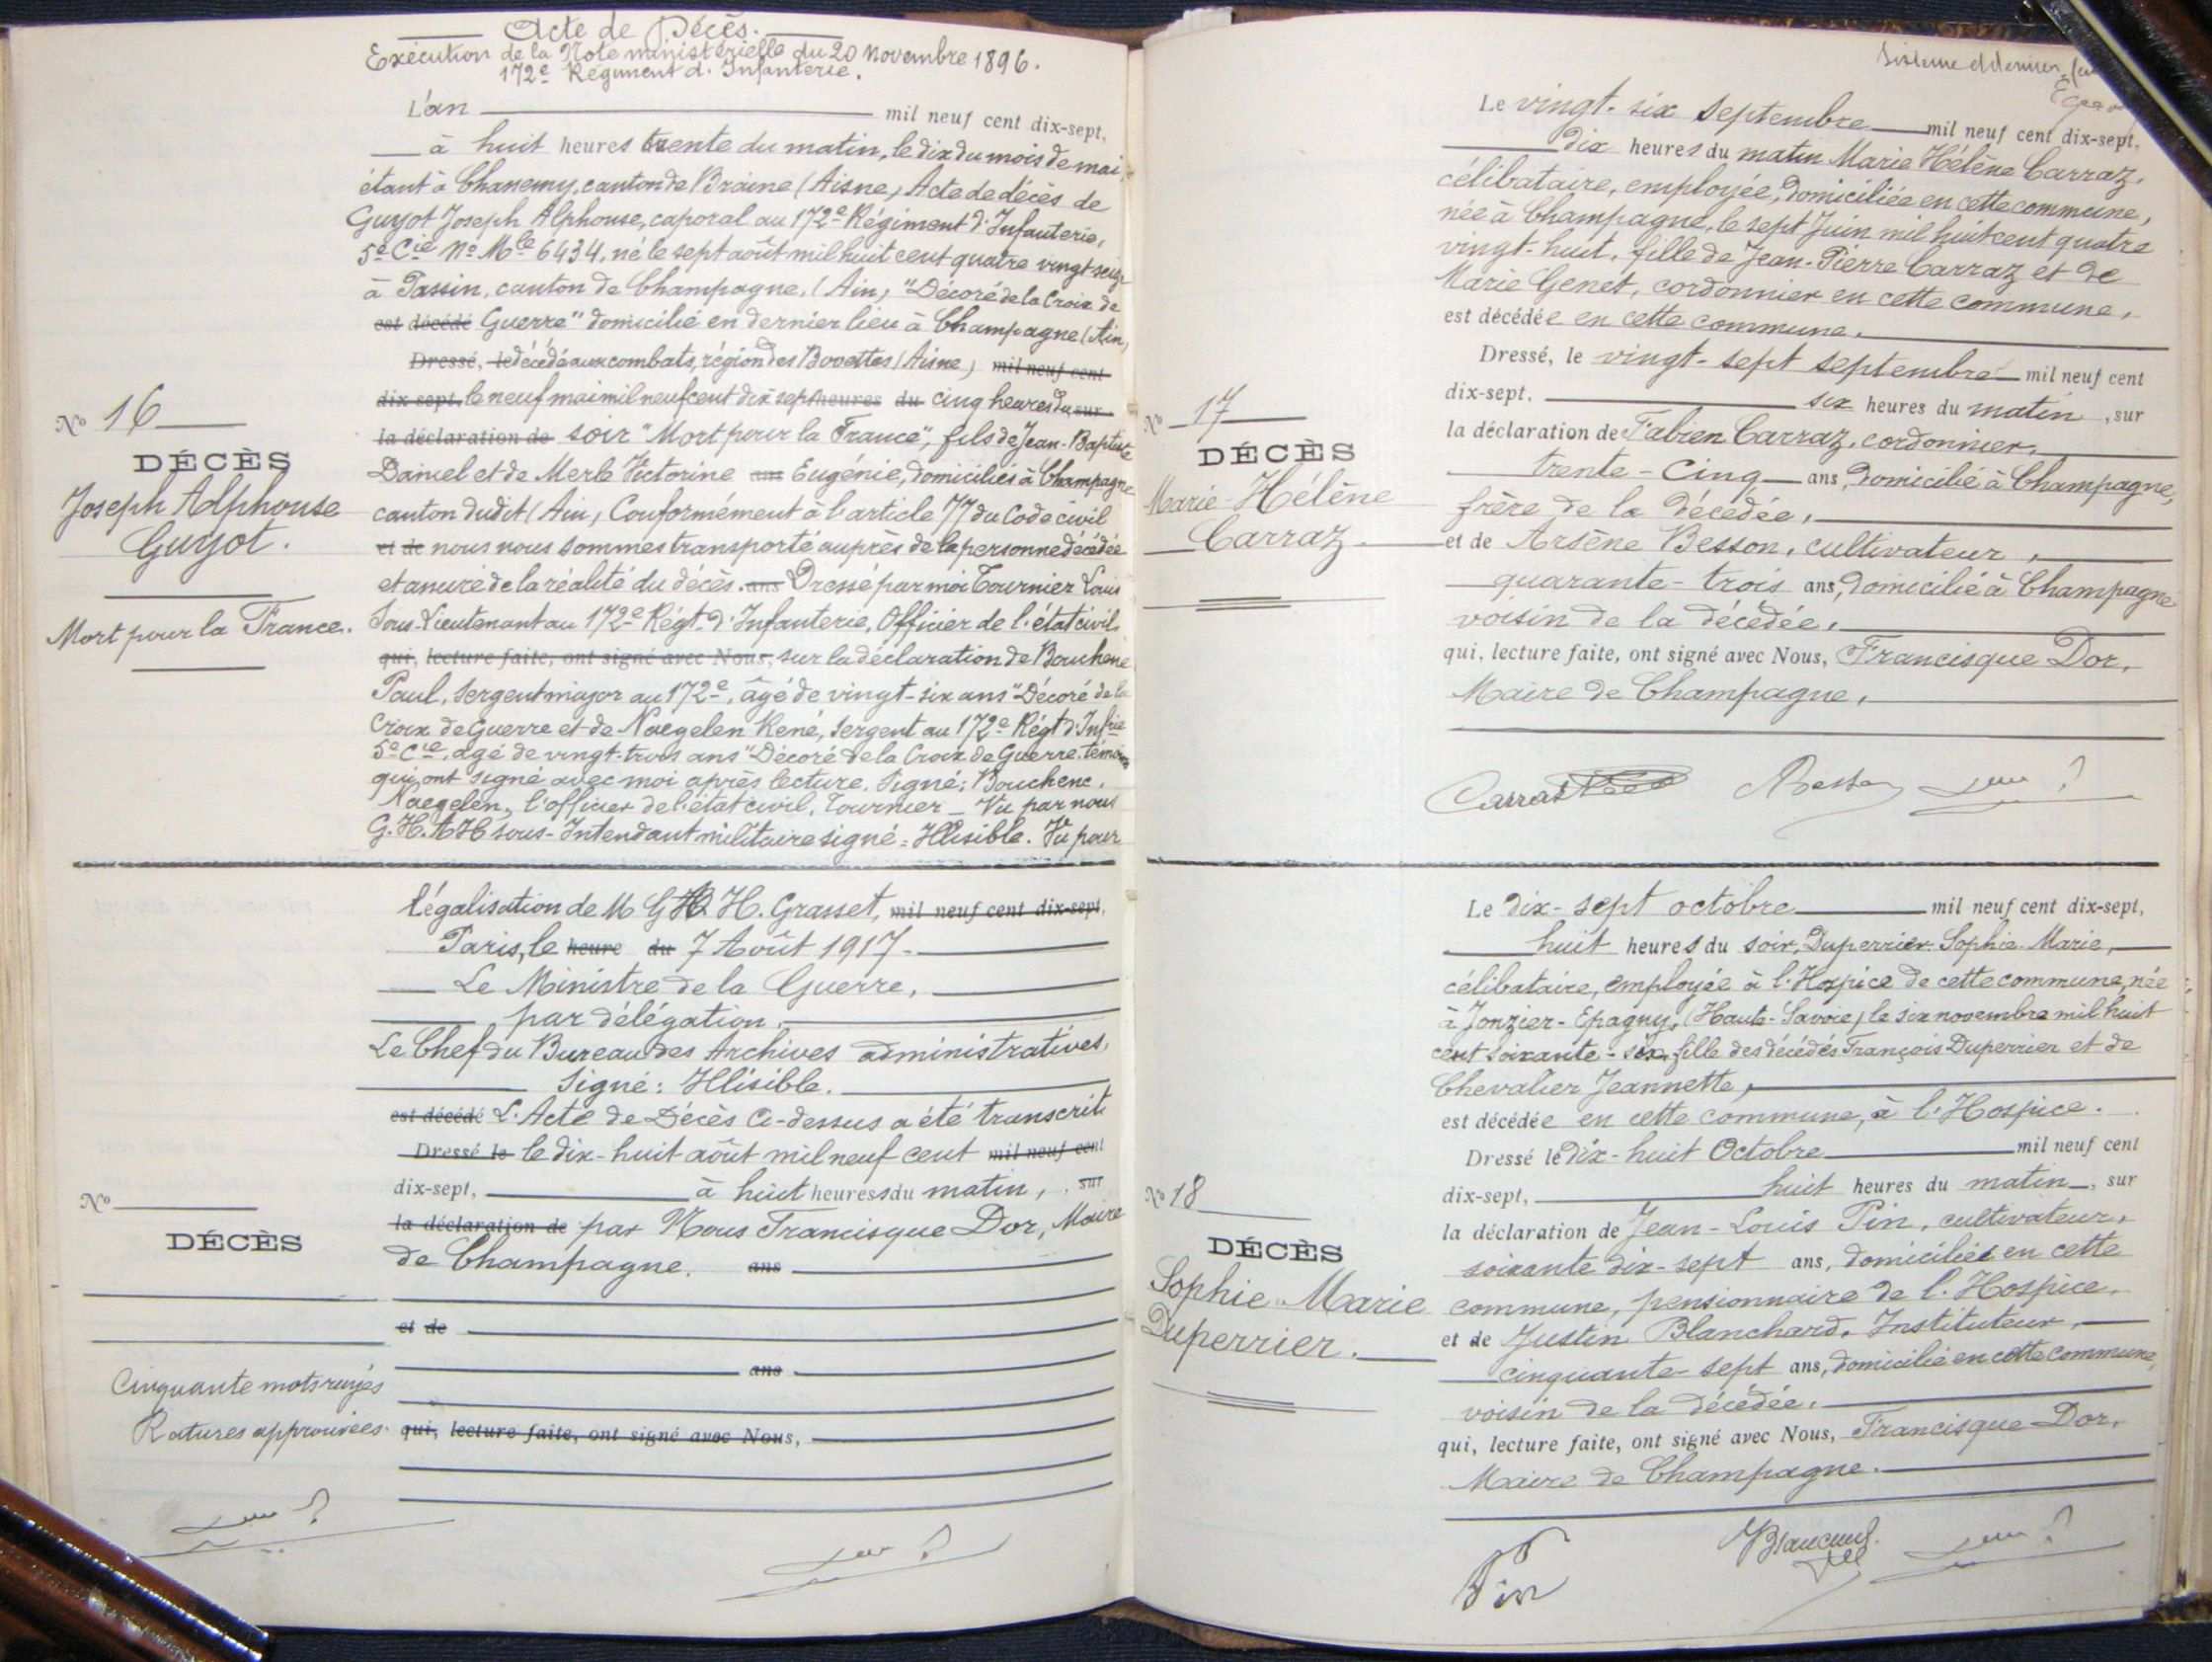 Acte de Décès.
Exécution de la Note ministérielle du 20 novembre 1896.
172e Régiment d'Infanterie.
L'an mil neuf cent dix-sept,
à huit heures trente du matin, le dix du mois de mai,
étant à Chanemy, canton de Braine (Aisne) Acte de décès de
Guyot Joseph Alphonse, caporal au 172e Régiment d'Infanterie,
5e Cie No Mle 6434, né le sept août mil huit cent quatre vingt seize
à Passin, canton de Champagne, (Ain) "Décoré de la Croix de
est décédé Guerre" domicilié en dernier lieu à Champagne (Ain)
Dressé, le décédé aux combats, région des Bovettes (Aisne) mil neuf cent
dix-sept, le neuf mai mil neuf cent dix sept heures du cinq heures du sur
la déclaration de soir "Mort pour la France", fils de Jean-Baptiste
Daniel et de Merle Victorine ans Eugénie, domiciliés à Champagne
canton dudit (Ain) Conformément à l'article 77 du Code civil
et de nous nous sommes transporté auprès de la personne décédée
et assuré de la réalité du décès. ans Dressé par moi Tournier Louis
Sous-Lieutenant au 172e Régt d'Infanterie, Officier de l'état civil
qui, lecture faite, ont signé avec Nous, sur la déclaration de Bouchene
Paul, Sergent major au 172e, âgé de vingt-six ans "Décoré de la
Croix de Guerre et de Naegelen René, sergent au 172e Régt d'Infrie
5e Cie, âgé de vingt-trois ans "Décoré de la Croix de Guerre. témoins
qui ont signé avec moi après lecture. Signé: Bouchene.
Naegelen, l'officier de l'état civil, Tournier _ Vu par nous
sous-Intendant militaire signé = Illisible. Vu pour
No 16
DÉCÈS
Joseph Alphonse
Guyot.
Mort pour la France.
légalisation de M H. Grasset, mil neuf cent dix-sept,
Paris, le heure du 7 Août 1917.
Le Ministre de la Guerre,
par délégation,
Le Chef du Bureau des Archives administratives,
Signé: Illisible.
est décédé L'Acte de Décès ci-dessus a été transcrit
Dressé le le dix-huit août mil neuf cent mil neuf cent
dix-sept, à huit heures du matin, sur
la déclaration de par Nous Francisque Dor, Maire
de Champagne. ans
et de
ans
qui, lecture faite, ont signé avec Nous,
No
DÉCÈS
Cinquante mots rayés
Ratures approuvées.
Le vingt-six Septembre mil neuf cent dix-sept,
dix heures du matin Marie Hélène Carraz,
célibataire, employée, domiciliée en cette commune,
née à Champagne, le sept Juin mil huit cent quatre
vingt-huit, fille de Jean-Pierre Carraz et de
Marie Genet, cordonnier en cette commune,
est décédée en cette commune.
Dressé, le vingt-sept septembre mil neuf cent
dix-sept, six heures du matin, sur
la déclaration de Fabien Carraz, cordonnier,
trente-cinq ans, domicilié à Champagne,
frère de la décédée,
et de Arsène Besson, cultivateur,
quarante-trois ans, domicilié à Champagne
voisin de la décédée,
qui, lecture faite, ont signé avec Nous, Francisque Dor,
Maire de Champagne,
No 17
DÉCÈS
Marie-Hélène
Carraz.
Le dix-sept octobre mil neuf cent dix-sept,
huit heures du soir, Duperrier Sophie-Marie,
célibataire, employée à l'Hospice de cette commune, née
à Jonzier-Epagny, (Haute-Savoie) le six novembre mil huit
cent soixante-six, fille des décédés François Duperrier et de
Chevalier Jeannette,
est décédée en cette commune, à l'Hospice.
Dressé le dix-huit Octobre mil neuf cent
dix-sept, huit heures du matin, sur
la déclaration de Jean-Louis Pin, cultivateur,
soixante dix-sept ans, domicilié en cette
commune, pensionnaire de l'Hospice,
et de Justin Blanchard, Instituteur,
cinquante-sept ans, domicilié en cette commune,
voisin de la décédée,
qui, lecture faite, ont signé avec Nous, Francisque Dor,
Maire de Champagne.
No 18
DÉCÈS
Sophie-Marie
Duperrier.
Pin